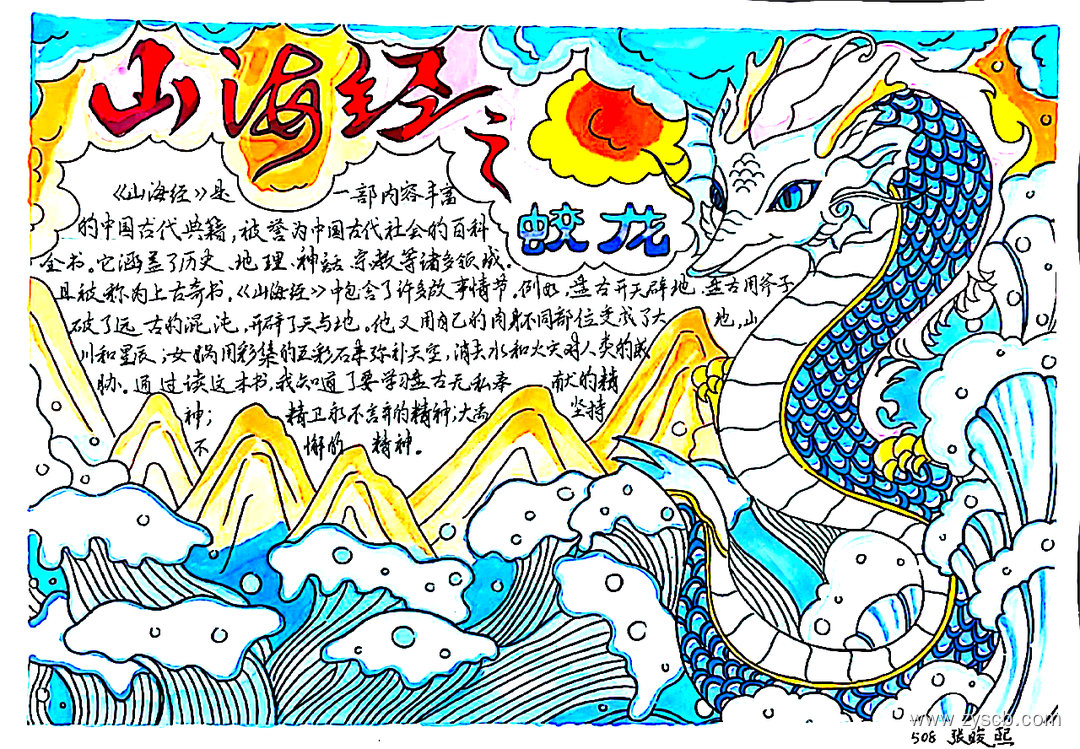 山海经之
蛟龙
《山海经》是一部内容丰富
的中国古代典籍，被誉为中国古代社会的百科
全书。它涵盖了历史、地理、神话、宗教等诸多领域。
且被称为上古奇书。《山海经》中包含了许多故事情节。例如，盘古开天辟地，盘古用斧子
破了远古的混沌，开辟了天与地。他又用自己的肉身不同部位变成了大地，山
川和星辰；女娲用彩集的五彩石来弥补天空，消去水和火灾对人类的威
胁。通过读这本书，我知道了要学习盘古无私奉献的精
神；精卫永不言弃的精神；大禹坚持
不懈的精神。
www.zyscb.com
508 张峻熙